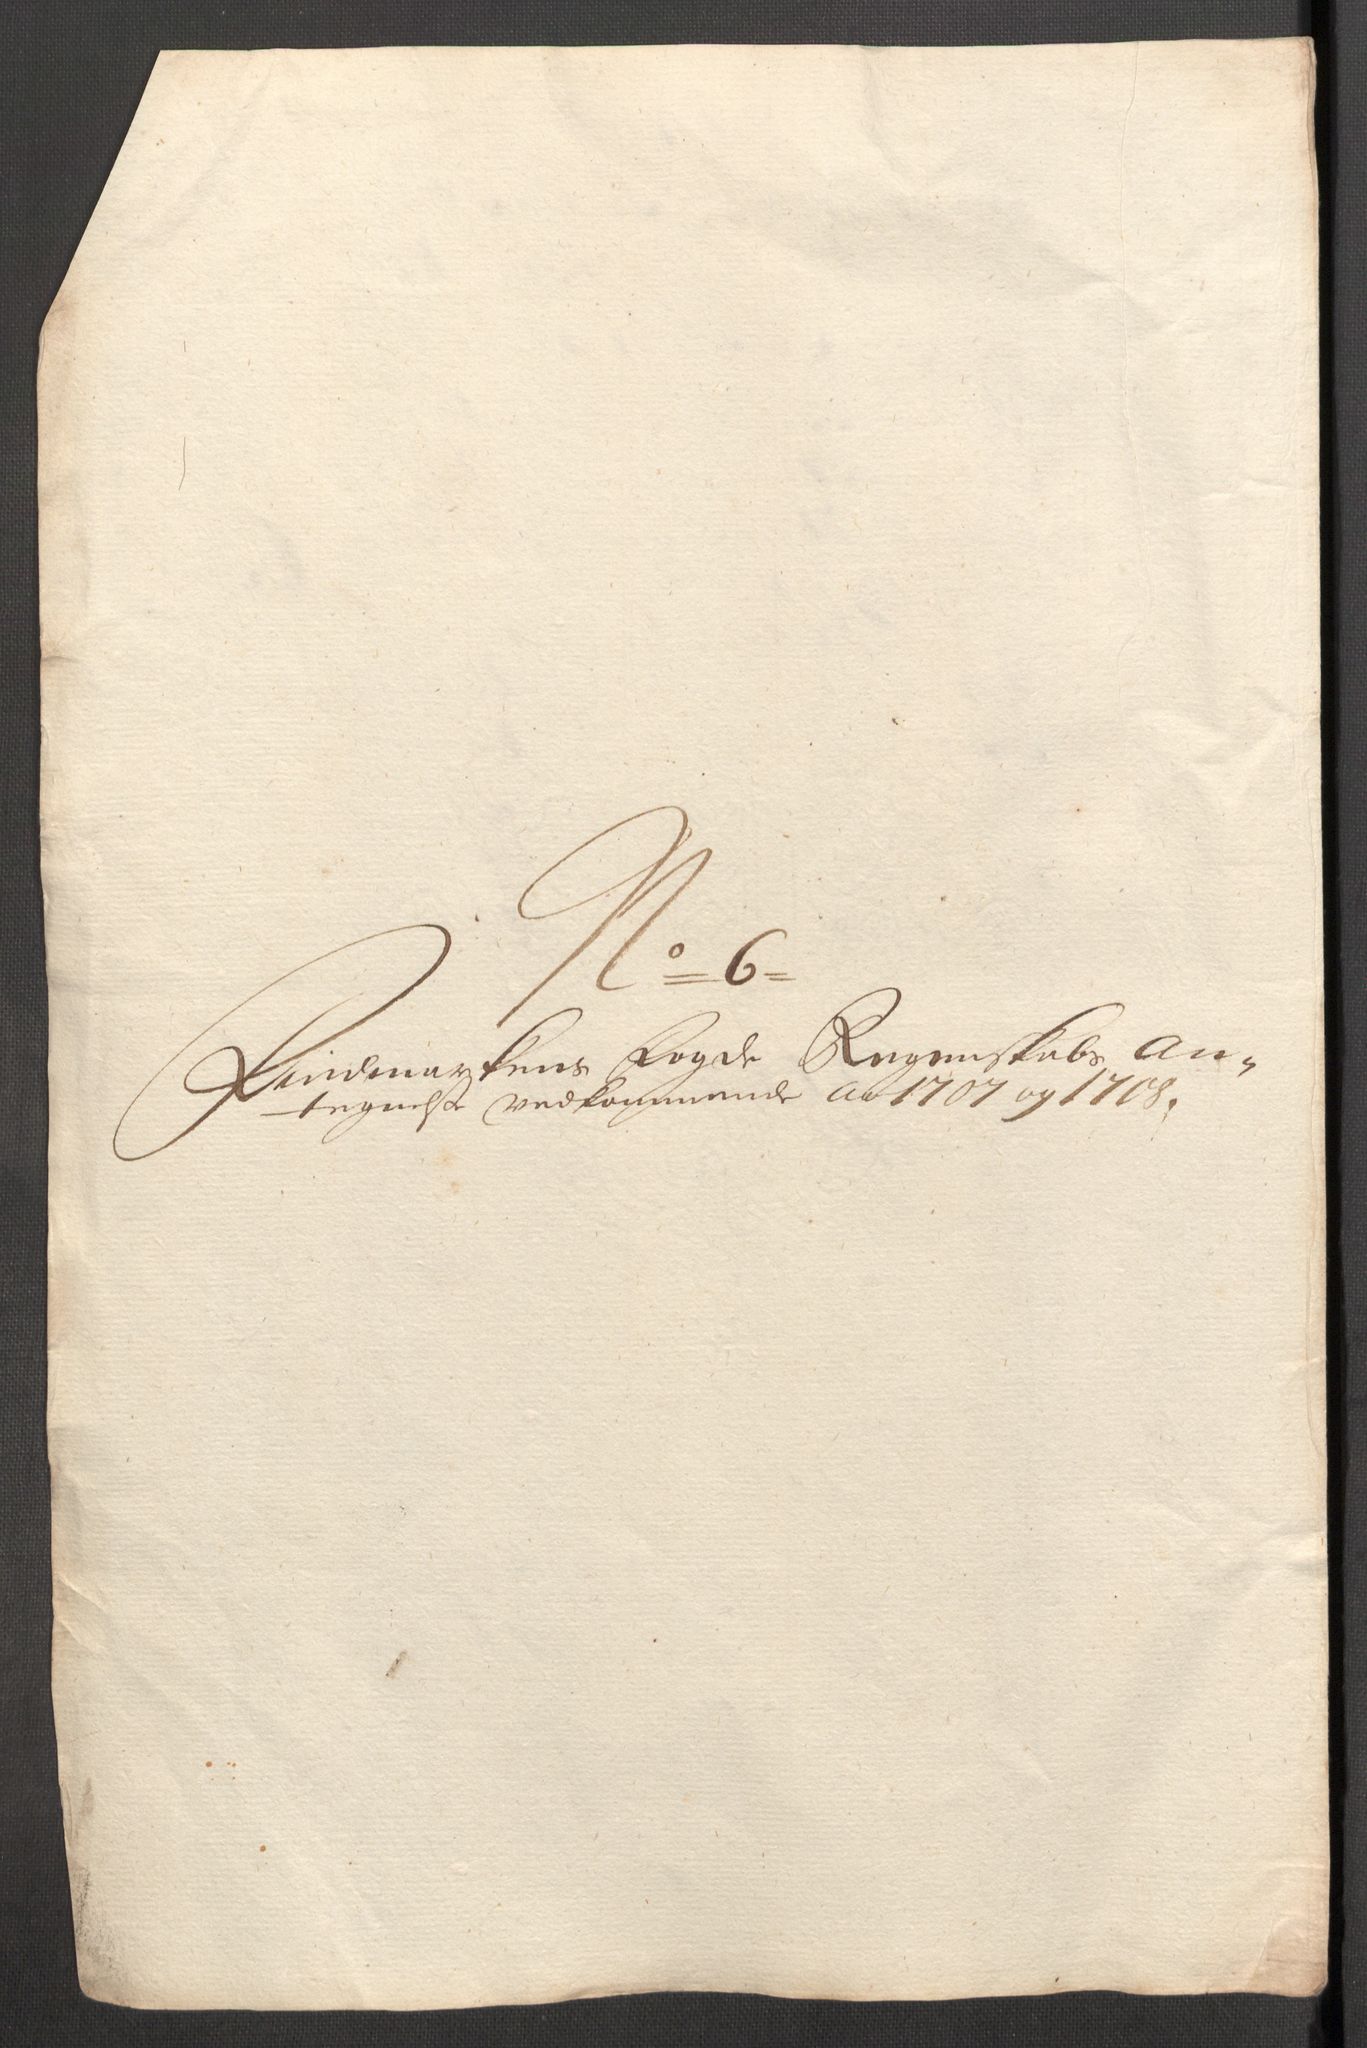 No = 6 =
Findmarkens Fogde Regenskabs An-
tegnelse vedkommende Ao 1707 og 1708.